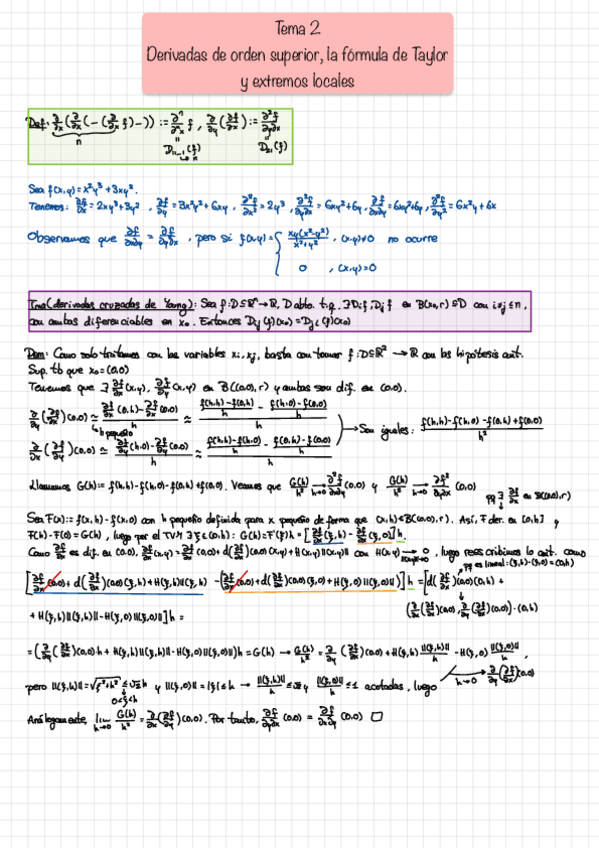 Tema 2
Derivadas de orden superior, la fórmula de Taylor
y extremos locales
Def: ∂/∂x(∂/∂x(-(∂/∂x f)-)) := ∂ⁿ/∂ⁿx f , ∂/∂y(∂f/∂x) := ∂²f/∂y∂x
n
Sea f(x,y) = x²y³ + 3xy².
Tenemos: ∂f/∂x = 2xy³ + 3y² , ∂f/∂y = 3x²y² + 6xy , ∂²f/∂x² = 2y³ , ∂²f/∂y∂x = 6xy² + 6y , ∂²f/∂x∂y = 6xy² + 6y , ∂²f/∂y² = 6x²y + 6x
Observamos que ∂²f/∂x∂y = ∂²f/∂y∂x , pero si f(x,y) = { xy(x²-y²)/x²+y² , (x,y)≠0 no ocurre
0 , (x,y)=0
Tma (derivadas cruzadas de Young): Sea f: D⊆ℝⁿ → ℝ, D abto. t.q. ∃ Dᵢf, Dⱼf en B(x₀,r) ⊆ D con i≠j ≤ n,
con ambas diferenciables en x₀. Entonces Dᵢⱼ(f)(x₀) = Dⱼᵢ(f)(x₀)
Dem: Como solo tratamos con las variables xᵢ, xⱼ, basta con tomar f: D⊆ℝ² → ℝ con las hipótesis ant.
Sup. tb que x₀ = (0,0)
Tenemos que ∃ ∂f/∂x(x,y), ∂f/∂y(x,y) en B((0,0),r) y ambas son dif. en (0,0).
∂/∂y(∂f/∂x)(0,0) ≃ (∂f/∂x(0,h) - ∂f/∂x(0,0))/h ≃ ((f(h,h)-f(0,h))/h - (f(h,0)-f(0,0))/h)/h
h pequeño
→ Son iguales: (f(h,h)-f(h,0)-f(0,h)+f(0,0))/h²
∂/∂x(∂f/∂y)(0,0) ≃ (∂f/∂y(h,0) - ∂f/∂y(0,0))/h ≃ ((f(h,h)-f(h,0))/h - (f(0,h)-f(0,0))/h)/h
Llamamos G(h) := f(h,h)-f(h,0)-f(0,h)+f(0,0). Veamos que G(h)/h² →h→0 ∂²f/∂x∂y(0,0) y G(h)/h² →h→0 ∂²f/∂y∂x(0,0)
pq ∃ ∂f/∂x en B((0,0),r)
Sea F(x) := f(x,h) - f(x,0) con h pequeño definida para x pequeño de forma que (x,h)∈B((0,0),r). Así, F der. en [0,h] y
F(h)-F(0) = G(h), luego por el TVM ∃ ξ∈(0,h): G(h) = F'(ξ)h = [∂f/∂x(ξ,h) - ∂f/∂x(ξ,0)]h.
Como ∂f/∂x es dif. en (0,0), ∂f/∂x(x,y) = ∂f/∂x(0,0) + d(∂f/∂x)(0,0)(x,y) + H(x,y)||(x,y)|| con H(x,y) → 0, luego reescribimos lo ant. como
pq es lineal: (ξ,h)-(ξ,0) = (0,h)
[∂f/∂x(0,0) + d(∂f/∂x)(0,0)(ξ,h) + H(ξ,h)||(ξ,h)|| - (∂f/∂x(0,0) + d(∂f/∂x)(0,0)(ξ,0) + H(ξ,0)||(ξ,0)||)]h = [d(∂f/∂x)(0,0)(0,h) +
(∂/∂x(∂f/∂x)(0,0), ∂/∂y(∂f/∂x)(0,0))·(0,h)
+ H(ξ,h)||(ξ,h)|| - H(ξ,0)||(ξ,0)||]h =
= (∂/∂y(∂f/∂x)(0,0)h + H(ξ,h)||(ξ,h)|| - H(ξ,0)||(ξ,0)||)h = G(h) → G(h)/h² = ∂/∂y(∂f/∂x)(0,0) + H(ξ,h) ||(ξ,h)||/h - H(ξ,0) ||(ξ,0)||/h,
pero ||(ξ,h)|| = √ξ²+h² ≤ √2h y ||(ξ,0)|| = |ξ| ≤ h → ||(ξ,h)||/h ≤ √2 y ||(ξ,0)||/h ≤ 1 acotadas, luego h→0 ∂/∂y(∂f/∂x)(0,0)
0<ξ<h
Análogamente, lim h→0 G(h)/h² = ∂/∂x(∂f/∂y)(0,0). Por tanto, ∂²f/∂y∂x(0,0) = ∂²f/∂x∂y(0,0) □